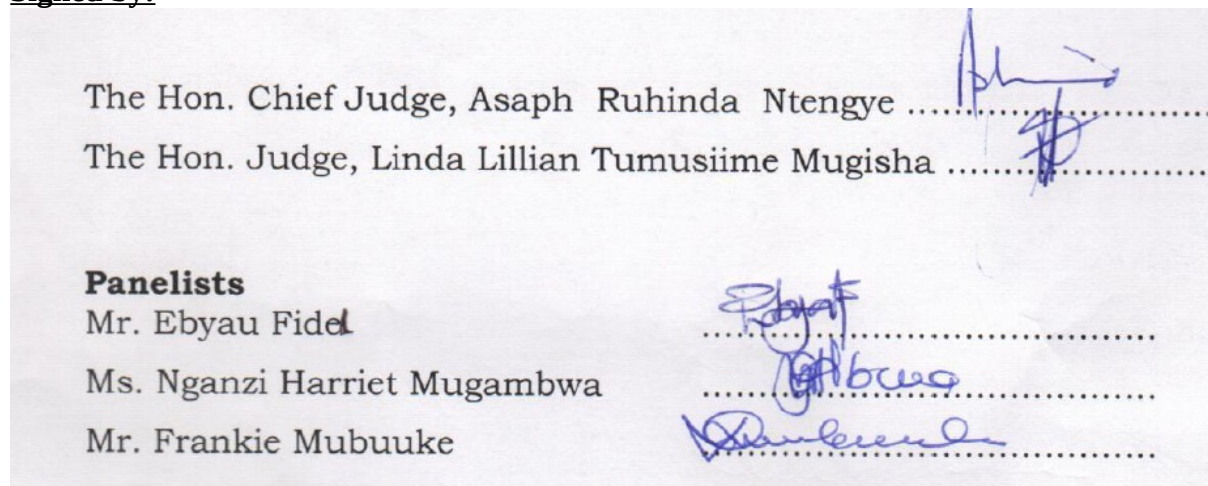 Signed by:
The Hon. Chief Judge, Asaph Ruhinda Ntengye ......................
The Hon. Judge, Linda Lillian Tumusiime Mugisha ......................
Panelists
Mr. Ebyau Fidel ......................
Ms. Nganzi Harriet Mugambwa ......................
Mr. Frankie Mubuuke ......................